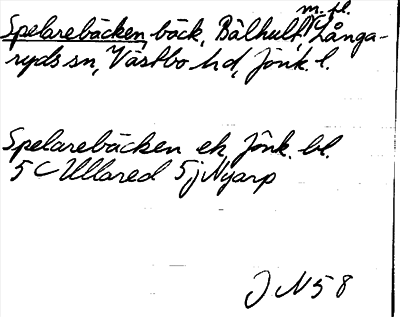 m. fl.
Spelarebäcken, bäck, Bälhult, Långa-
ryds sn, Västbo hd, Jönk. l.
Spelarebäcken ek. Jönk. bl.
5 C Ullared 5j Nyarp
J N 58